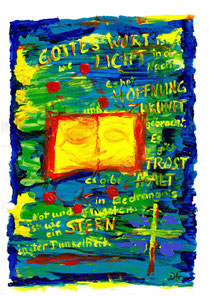 GOTTES WORT ist
wie LICHT in der
Nacht
es hat HOFFNUNG
und ZUKUNFT
gebracht.
Es gibt
TROST
es gibt HALT
in Bedrängnis
Not und Ängsten
ist wie
ein STERN
in der Dunkelheit